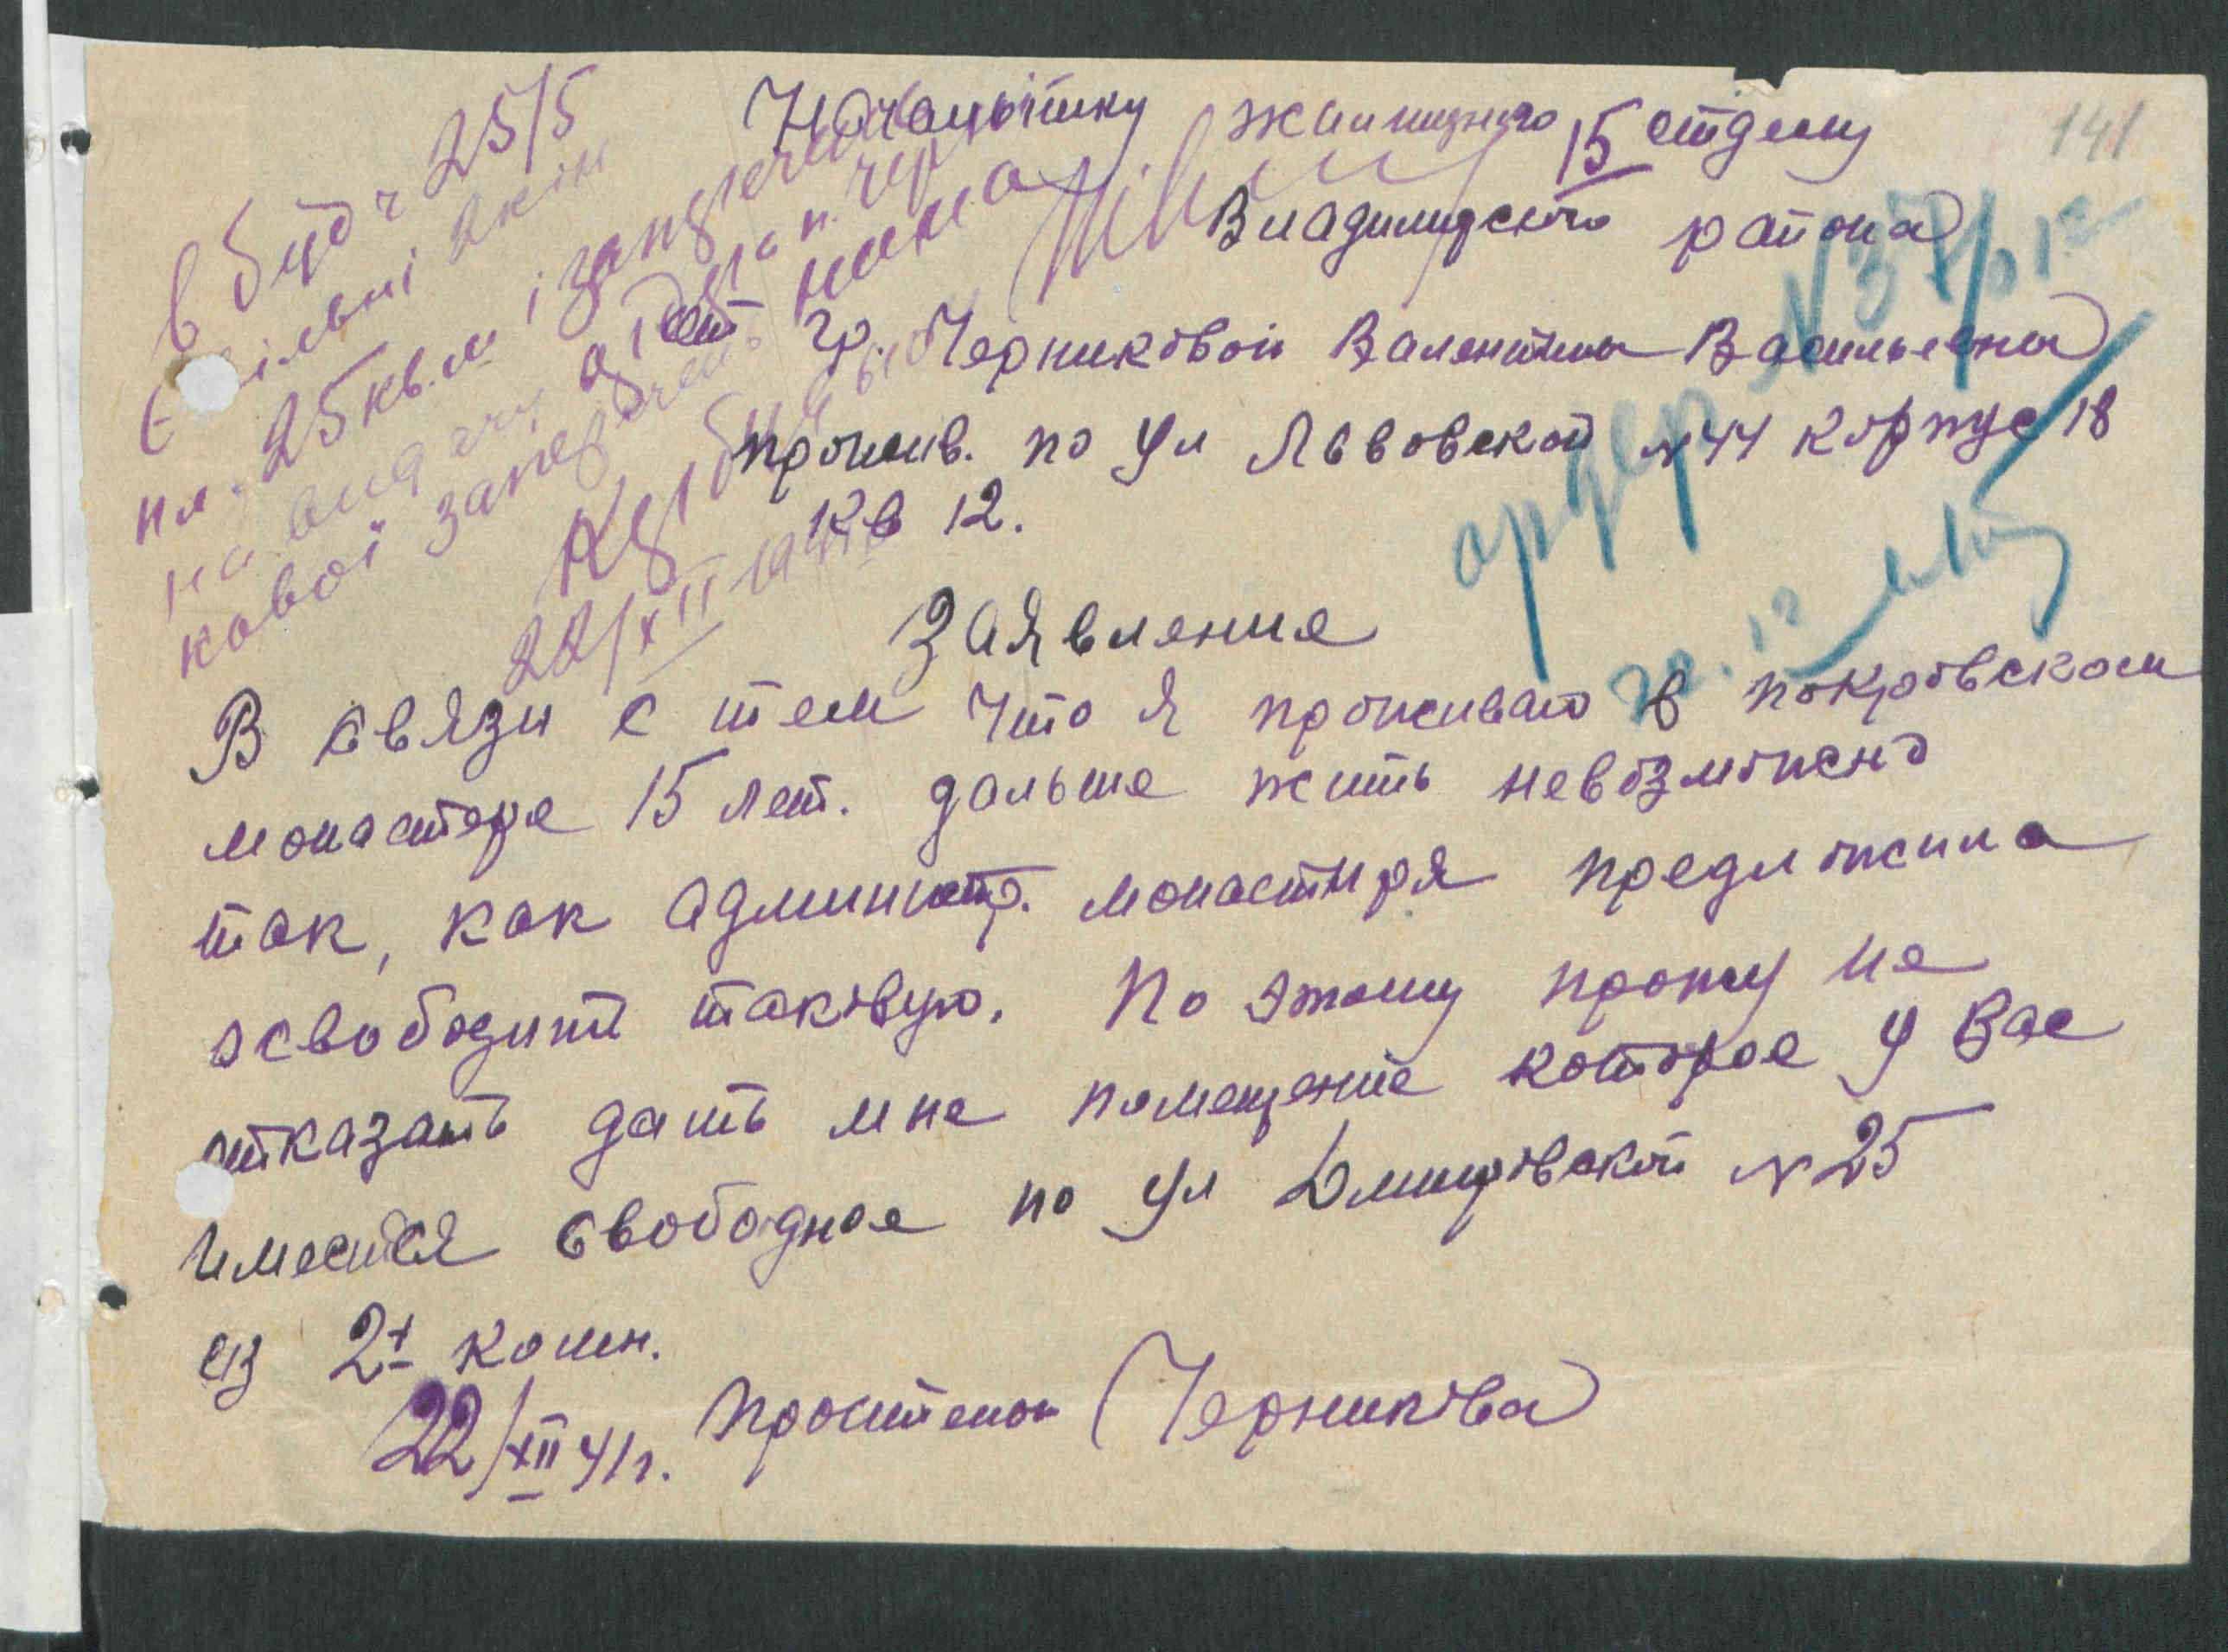 141
Начальнику жилищного 15 отделу
Владимирского района
от гр. Черниковой Валентины Васильевны
прожив. по ул Львовской № 44 корпус 18
кв 12.
в буд ч 25/5
вільні
пл. 25 кв.м і
на видачу
кової
22/XII 1941
ордер № 37/01
22.12
Заявление
В связи с тем что я проживаю в покровском
монастере 15 лет. дальше жить невозможно
так, как администр. монастиря предложила
освободить таковую. По этому прошу не
отказать дать мне помещение которое у Вас
имеется свободное по ул Дмитровской № 25
из 2х комн.
22/XII 41 г. Просителю (Черникова)